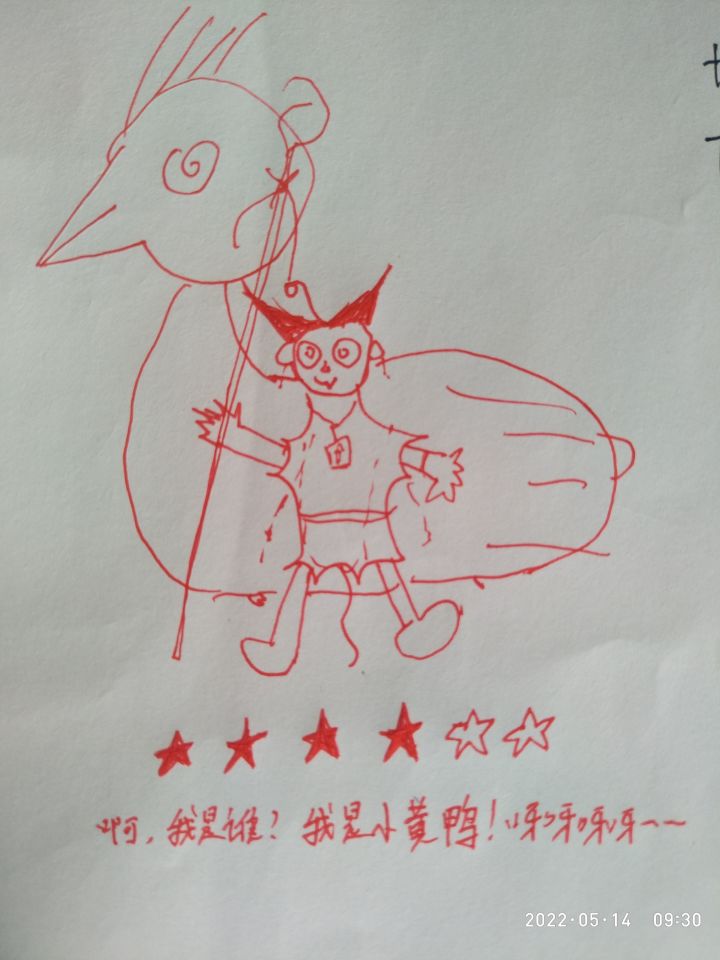 啊，我是谁？我是小黄鸭！呀呀呀呀~~
2022·05·14 09:30